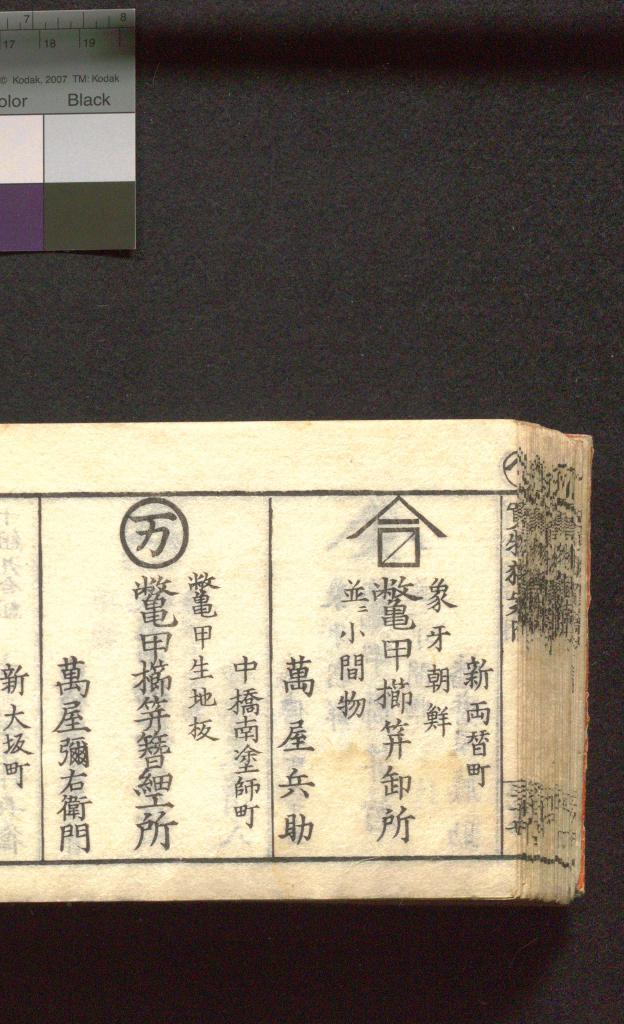 7 8
17 18 19
© Kodak, 2007 TM: Kodak
olor Black
新両替町
象牙朝鮮
鼈甲櫛笄卸所
並ニ小間物
萬屋兵助
中橋南塗師町
鼈甲生地板
万
鼈甲櫛笄簪細工所
萬屋彌右衛門
新大坂町